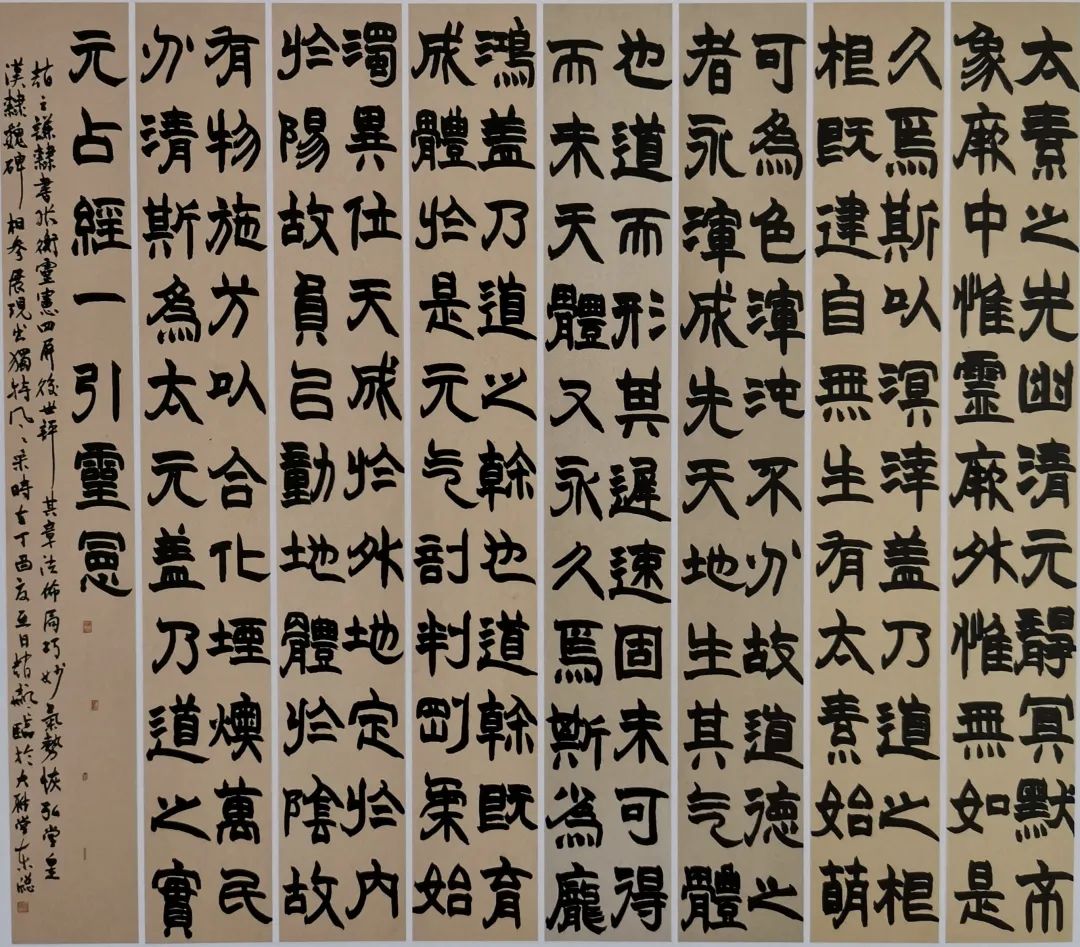 太素之先幽清元靜冥默帝
象厥中惟靈厥外惟無如是
久焉斯以溟涬蓋乃道之相
相既建自無生有太素始萌
可為色渾沌不分故道德之
者永渾成先天地生其气體
也道而形其遲速固未可得
而未天體又永久焉斯為龐
鴻蓋乃道之榦也道榦既育
成體於是元气剖判剛柔始
濁異位天成於外地定於內
於陽故員以動地體於陰故
有物施方以合化堙燠萬民
分清斯為太元蓋乃道之實
元占經一引靈憲
趙之謙隸書張衡靈憲四屏後世評其章法佈局巧妙氣勢恢弘學皇
漢隸魏碑相參展現出獨特風采時在丁酉夏五日臨於大研堂東牕